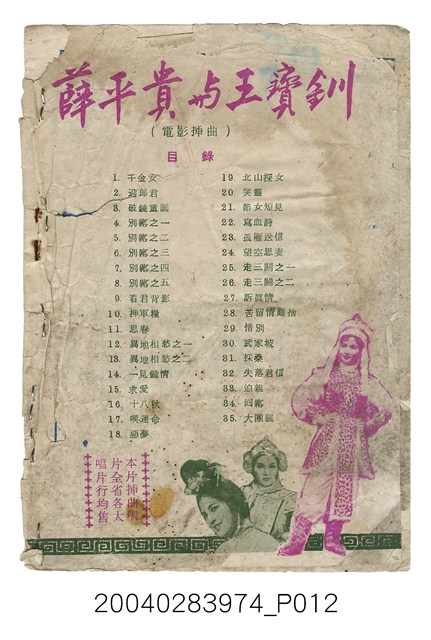 薛平貴與王寶釧
(電影揷曲)
目錄
1. 千金女
2. 遊郎君
3. 破鏡重圓
4. 別鄉之一
5. 別鄉之二
6. 別鄉之三
7. 別鄉之四
8. 別鄉之五
9. 看君背影
10. 押軍糧
11. 思春
12. 異地相愁之一
13. 異地相愁之二
14. 一見鍾情
15. 求愛
16. 十八秋
17. 嘆運命
18. 惡夢
19. 北山探女
20. 哭靈
21. 節女短見
22. 寫血詩
23. 孤雁送信
24. 望空思妻
25. 走三關之一
26. 走三關之二
27. 訴眞情
28. 苦留情難捨
29. 惜別
30. 武家坡
31. 採桑
32. 失落君信
33. 迫親
34. 回鄉
35. 大團圓
本片揷曲唱
片全省各大
唱片行均售
20040283974_P012